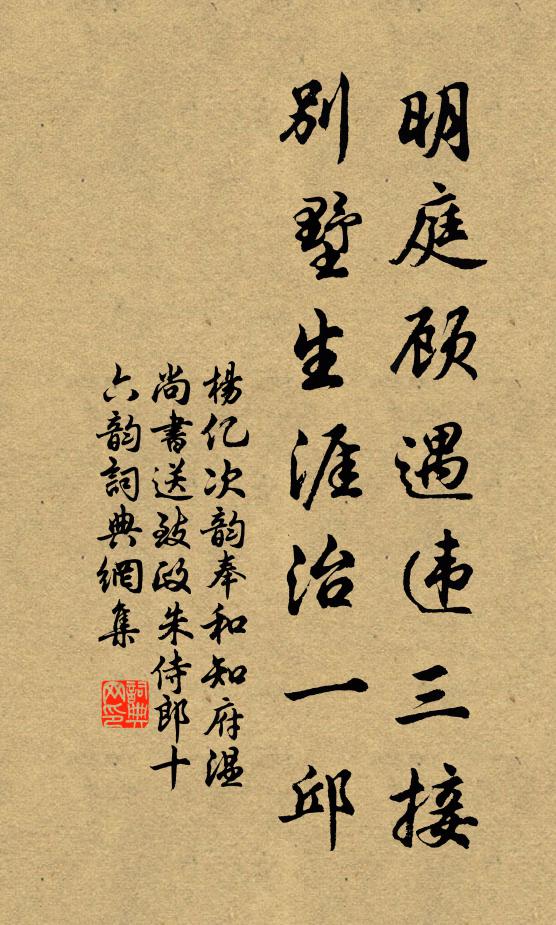 明庭顾遇违三接
别墅生涯治一邱
杨亿次韵奉和知府温
尚书送致政朱侍郎十
六韵詞典網集
詞典网印